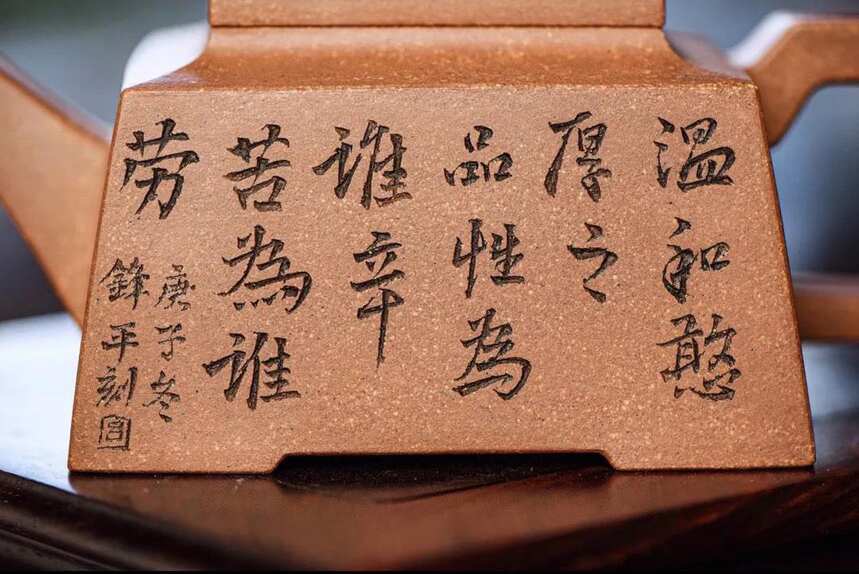 温和憨
厚之
品性為
誰辛
苦為誰
劳
庚子冬
鋒平刻